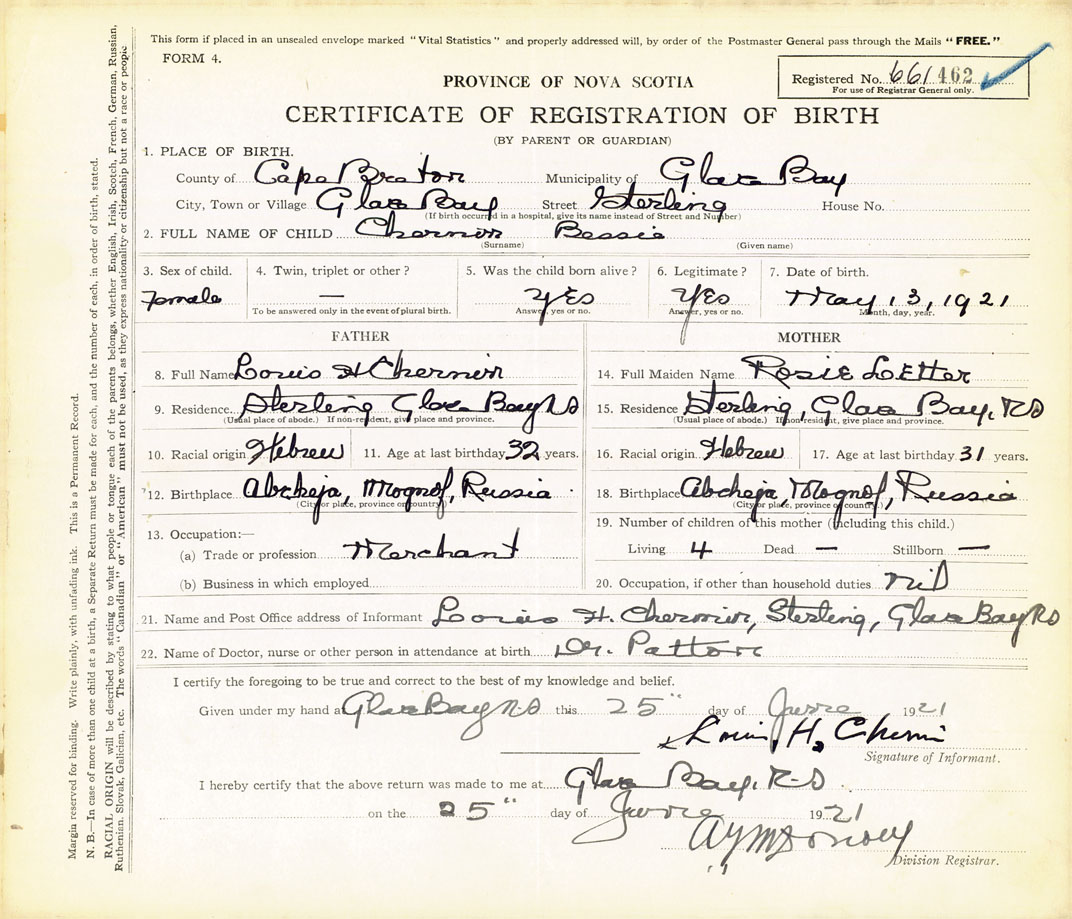 This form if placed in an unsealed envelope marked "Vital Statistics" and properly addressed will, by order of the Postmaster General pass through the Mails "FREE."
FORM 4.
PROVINCE OF NOVA SCOTIA
Registered No. 661462
For use of Registrar General only.
CERTIFICATE OF REGISTRATION OF BIRTH
(BY PARENT OR GUARDIAN)
1. PLACE OF BIRTH.
County of Cape Breton Municipality of Glace Bay
City, Town or Village Glace Bay Street Sterling House No.
(If birth occurred in a hospital, give its name instead of Street and Number)
2. FULL NAME OF CHILD Chernin Bessie
(Surname) (Given name)
3. Sex of child. 4. Twin, triplet or other? 5. Was the child born alive? 6. Legitimate? 7. Date of birth.
Female — YEs YEs May 13, 1921
To be answered only in the event of plural birth. Answer, yes or no. Answer, yes or no. Month, day, year.
FATHER
8. Full Name Louis H Chernin
9. Residence Sterling Glace Bay NS
(Usual place of abode.) If non-resident, give place and province.
10. Racial origin Hebrew 11. Age at last birthday 32 years.
12. Birthplace Abcheja, Mognof, Russia
(City or place, province or country)
13. Occupation:—
(a) Trade or profession Merchant
(b) Business in which employed
MOTHER
14. Full Maiden Name Rosie LEtter
15. Residence Sterling, Glace Bay, NS
(Usual place of abode.) If non-resident, give place and province.
16. Racial origin Hebrew 17. Age at last birthday 31 years.
18. Birthplace Abcheja Mognof, Russia
(City or place, province or country.)
19. Number of children of this mother (including this child.)
Living 4 Dead — Stillborn —
20. Occupation, if other than household duties Nil
21. Name and Post Office address of Informant Louis H. Chernin, Sterling, Glace Bay NS
22. Name of Doctor, nurse or other person in attendance at birth Dr. Patton
I certify the foregoing to be true and correct to the best of my knowledge and belief.
Given under my hand at Glace Bay NS this 25" day of June 1921
Louis, H. Cherni
Signature of Informant.
I hereby certify that the above return was made to me at Glace Bay, N-S
on the 25" day of June 1921
Division Registrar.
Margin reserved for binding. Write plainly, with unfading ink. This is a Permanent Record.
N. B.—In case of more than one child at a birth, a Separate Return must be made for each, and the number of each, in order of birth, stated.
RACIAL ORIGIN will be described by stating to what people or tongue each of the parents belongs, whether English, Irish, Scotch, French, German, Russian,
Ruthenian, Slovak, Galician, etc. The words "Canadian" or "American" must not be used, as they express nationality or citizenship but not a race or people